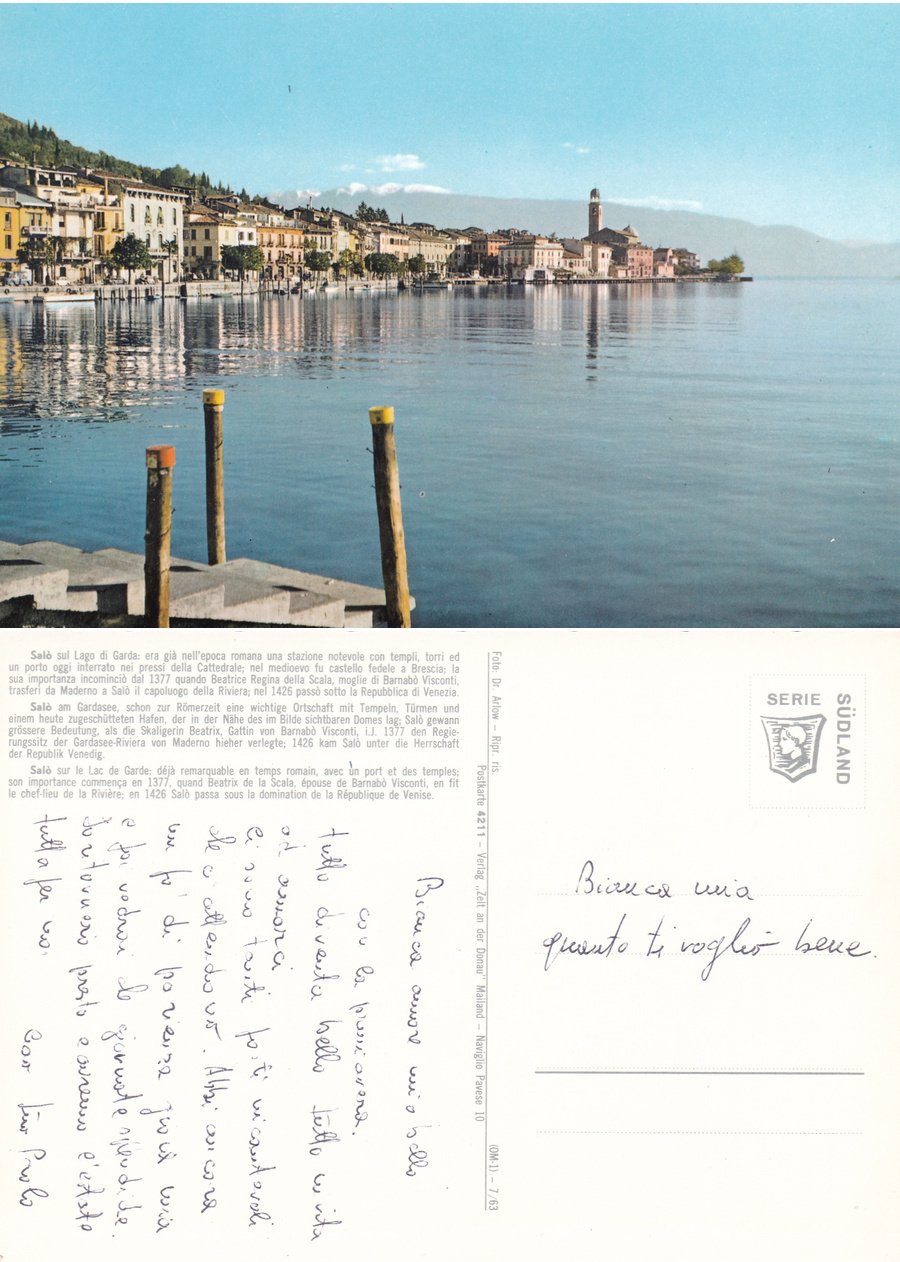 Salò sul Lago di Garda: era già nell'epoca romana una stazione notevole con templi, torri ed
un porto oggi interrato nei pressi della Cattedrale; nel medioevo fu castello fedele a Brescia; la
sua importanza incominciò dal 1377 quando Beatrice Regina della Scala, moglie di Barnabò Visconti,
trasferì da Maderno a Salò il capoluogo della Riviera; nel 1426 passò sotto la Repubblica di Venezia.
Salò am Gardasee, schon zur Römerzeit eine wichtige Ortschaft mit Tempeln, Türmen und
einem heute zugeschütteten Hafen, der in der Nähe des im Bilde sichtbaren Domes lag; Salò gewann
grössere Bedeutung, als die Skaligerin Beatrix, Gattin von Barnabò Visconti, i.J. 1377 den Regie-
rungssitz der Gardasee-Riviera von Maderno hieher verlegte; 1426 kam Salò unter die Herrschaft
der Republik Venedig.
Salò sur le Lac de Garde: déjà remarquable en temps romain, avec un port et des temples;
son importance commença en 1377, quand Beatrix de la Scala, épouse de Barnabò Visconti, en fit
le chef-lieu de la Rivière; en 1426 Salò passa sous la domination de la République de Venise.
Bianca amore mio bello
con la primavera
tutto diventa bello tutto invita
ad amarci
Ci sono tanti posti incantevoli
che ci attendono. Abbi ancora
un po' di pazienza gioia mia
e poi vedrai che giornate splendide.
Io tornerò presto e avremo l'estate
tutta per noi
Ciao tuo Paolo
Foto: Dr. Arlow – Ripr. ris.
Postkarte 4211 – Verlag „Zelt an der Donau" Mailand – Naviglio Pavese 10
(OM-1) – 7/63
SERIE
SÜDLAND
Bianca mia
quanto ti voglio bene.